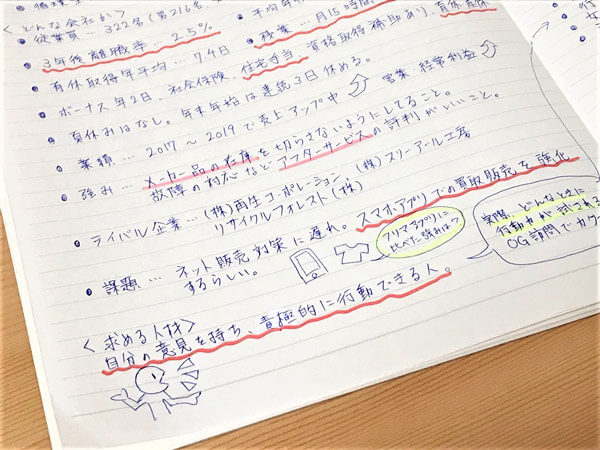 <どんな会社か>
従業員… 322名(男216名、
3年後離職率… 2.5%
残業… 月15時間
有休取得年平均… 7.4日
ボーナス年2日、社会保険、住宅手当、資格取得補助あり、育休産休
夏休みはなし。年末年始は連続3日休める。
業績… 2017〜2019で売上アップ中
営業・経常利益
強み… メーカー品の在庫を切らさないようにしてること。
故障の対応などアフターサービスの評判がいいこと。
ライバル企業… (株)再生コーポレーション、(株)スリーアール工房
リサイクルフォレスト(株)
課題… ネット販売対策に遅れ。スマホアプリでの買取販売を強化
するらしい。
フリマアプリに
比べた強みは?
実際、どんなときに
行動力が試される
OG訪問でカク
<求める人材>
自分の意見を持ち、積極的に行動できる人。